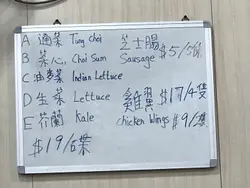 A 通菜 Tung Choi
B 菜心 Choi Sum
C 油麥菜 Indian Lettuce
D 生菜 Lettuce
E 芥蘭 Kale
$19/碟
芝士腸
Sausage $5/
雞翼 $17/4隻
chicken wings $9/